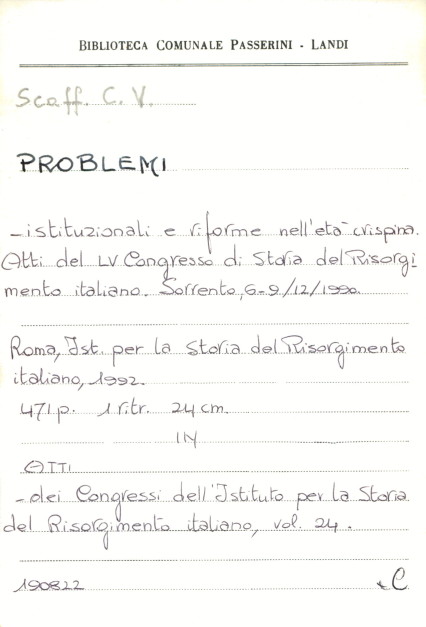 BIBLIOTECA COMUNALE PASSERINI - LANDI
Scaff. C. V.
PROBLEMI
-istituzionali e riforme nell'età crispina.
Atti del LV Congresso di Storia del Risorgi
mento italiano. Sorrento, 6-9/12/1990.
Roma, Ist. per la Storia del Risorgimento
italiano, 1992.
471 p. 1 ritr. 24 cm.
IN
ATTI
-dei Congressi dell'Istituto per la Storia
del Risorgimento italiano, vol. 24.
190822
C